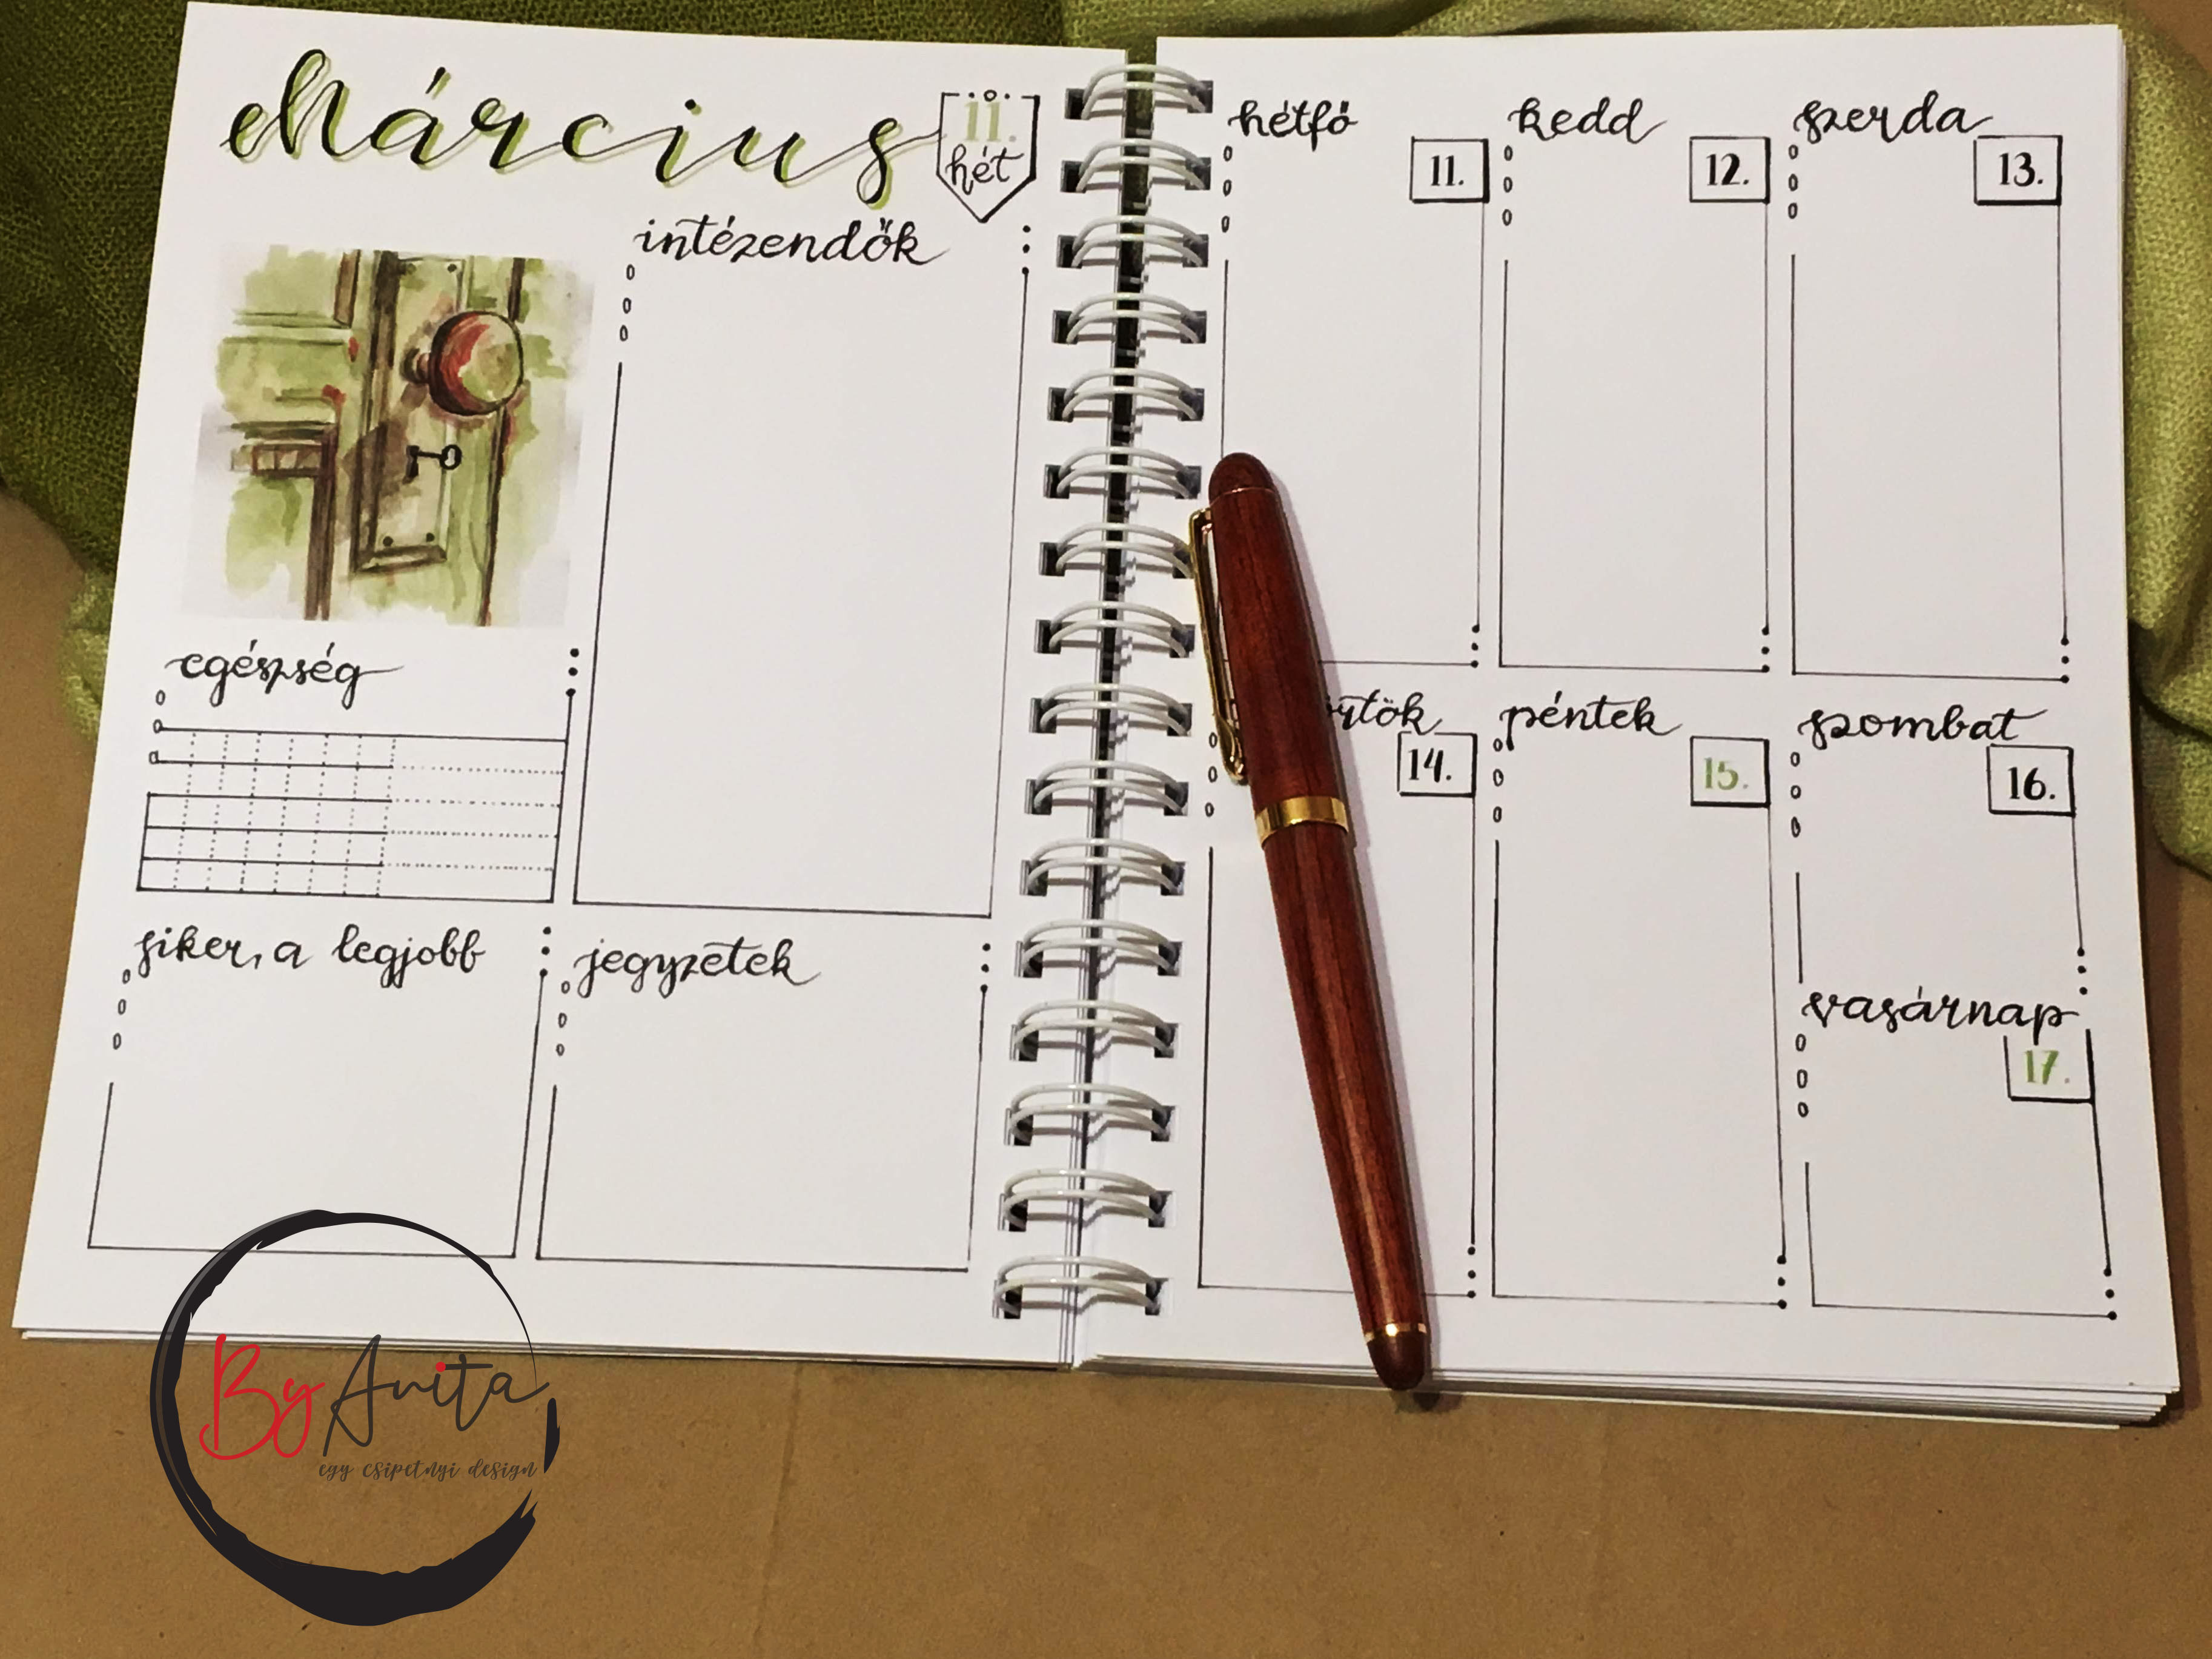 Március
11.
hét
intézendők
egészség
siker, a legjobb
jegyzetek
hétfő
11.
kedd
12.
szerda
13.
14.
péntek
15.
szombat
16.
vasárnap
17.
By Anita
egy csipetnyi design